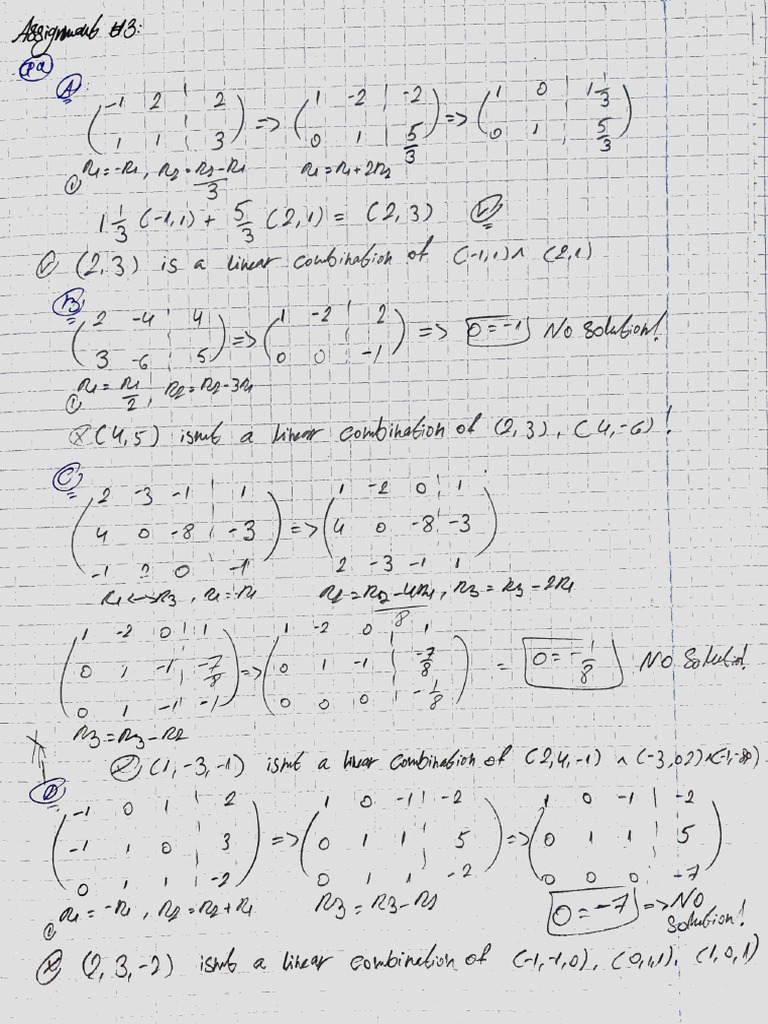 Assignment #3:
1a
A
( -1 2 | 2 ) => ( 1 -2 | -2 ) => ( 1 0 | 1 1/3 )
( 1 1 | 3 ) ( 0 1 | 5/3 ) ( 0 1 | 5/3 )
① R1=-R1, R2=(R2-R1)/3 R1=R1+2R2
1 1/3 (-1,1) + 5/3 (2,1) = (2,3) ✓
✓ (2,3) is a linear combination of (-1,1) ∧ (2,1)
B
( 2 -4 | 4 ) => ( 1 -2 | 2 ) => 0=-1 No solution!
( 3 -6 | 5 ) ( 0 0 | -1 )
① R1=R1/2, R2=R2-3R1
x (4,5) isnt a linear combination of (2,3), (4,-6)!
C
( 2 -3 -1 | 1 ) ( 1 -2 0 | 1 )
( 4 0 -8 | -3 ) => ( 4 0 -8 | -3 )
( -1 2 0 | -1 ) ( 2 -3 -1 | 1 )
R1<->R3, R1=-R1 R2=(R2-4R1)/8, R3=R3-2R1
( 1 -2 0 | 1 ) ( 1 -2 0 | 1 )
( 0 1 -1 | -7/8 ) => ( 0 1 -1 | -7/8 ) = 0=-1/8 No solution!
( 0 1 -1 | -1 ) ( 0 0 0 | -1/8 )
R3=R3-R2
x (1,-3,-1) isnt a linear combination of (2,4,-1) ∧ (-3,02) ∧ (-1,-8,0)
D
( -1 0 1 | 2 ) ( 1 0 -1 | -2 ) ( 1 0 -1 | -2 )
( -1 1 0 | 3 ) => ( 0 1 1 | 5 ) => ( 0 1 1 | 5 )
( 0 1 1 | -2 ) ( 0 1 1 | -2 ) ( 0 0 0 | -7 )
① R1=-R1, R2=R2+R1 R3=R3-R2 0=-7 => No solution!
x (2,3,-2) isnt a linear combination of (-1,-1,0), (0,1,1), (1,0,1)